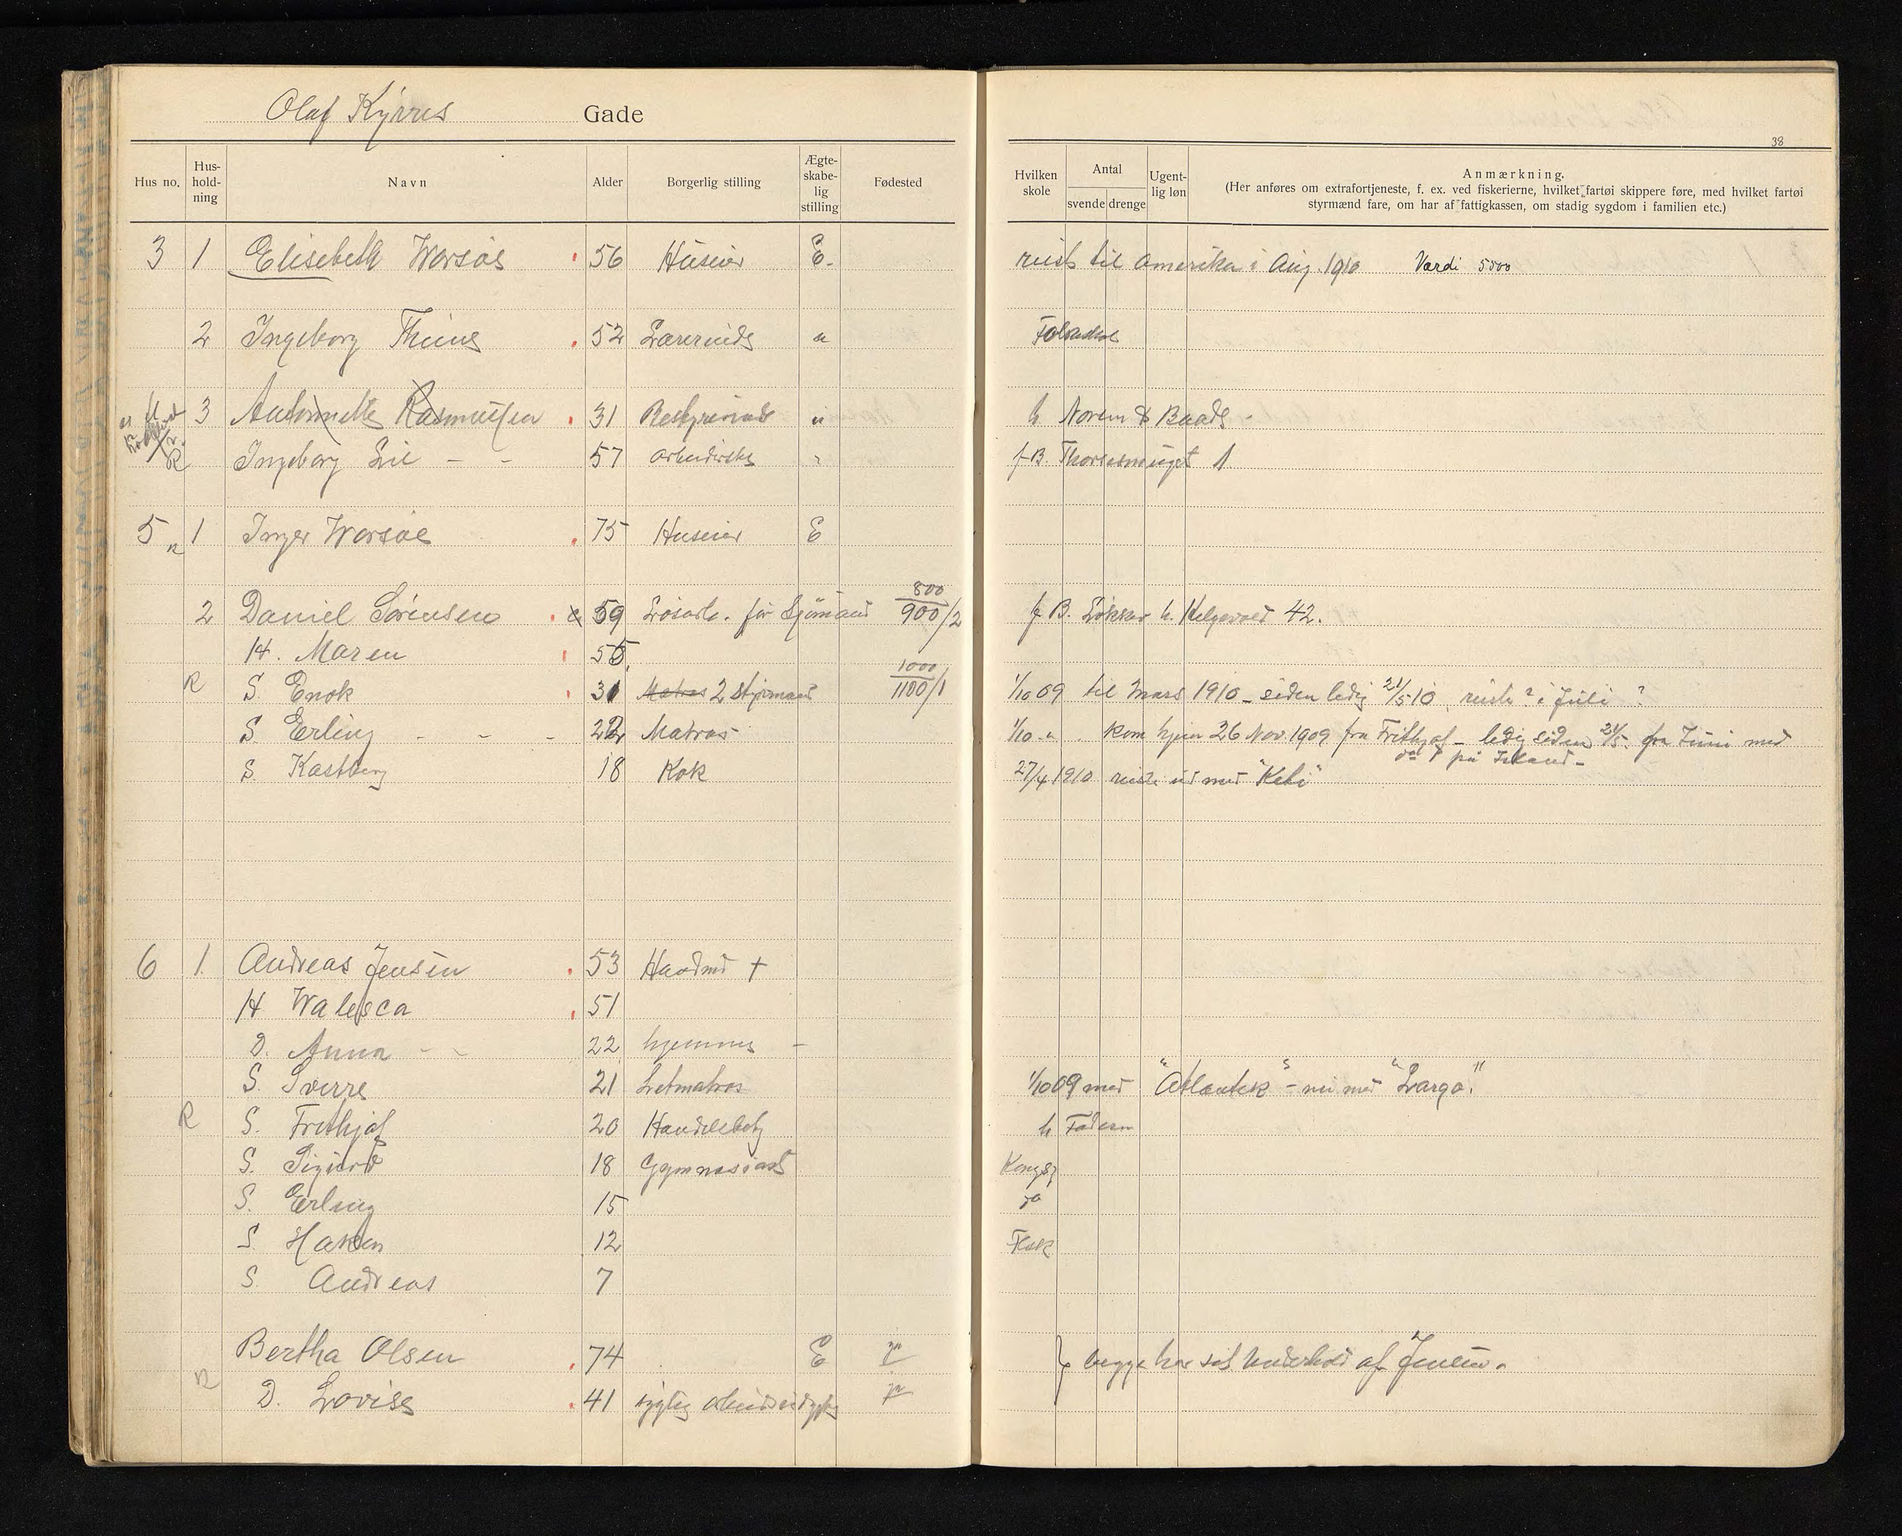 Olaf Kyrres Gade
38
Hus no. Hus-hold-ning Navn Alder Borgerlig stilling Ægte-skabe-lig stilling Fødested Hvilken skole Antal svende drenge Ugent-lig løn Anmærkning.
(Her anføres om extrafortjeneste, f. ex. ved fiskerierne, hvilket fartøi skippere føre, med hvilket fartøi
styrmænd fare, om har af fattigkassen, om stadig sygdom i familien etc.)
3 1 Elisebeth Worsøe 56 Huseier E. reist til Amerika i Aug. 1910 Værdi 5000
2 Ingeborg Thime 52 Lærerinde " Folkeskol
3 Antonnette Rasmussen 31 " h Noren & Baade -
R Ingeborg Lie - - 57 " f B. 1
5 R 1 Inger Worsøe 75 Huseier E
800
2 Daniel Sørensen 59 Løsarb. før Sjømand 900/2 f B. h. Helgevold 42.
H. Maren 55
1000
R S. Enok 31 Matros 2 Styrmand 1100/1 1/10 09 til Mars 1910 - siden ledig 21/5 10, reiste? i Juli ?
S. Erling - - - 22 Matros 1/10 - " . kom hjem 26 Nov. 1909 fra Frithjof - ledig siden 21/5. fra Juni med
do på Island -
S. Kastberg 18 Kok 27/4 1910 reiste ud med "Kebi"
6 1. Andreas Jensen 53 Handmd +
H Walesca 51
D. Anna - - 22 hjemme -
S. Sverre 21 Letmatros 1/10 09 med "Atlantik" - nu med "Largo."
R S. Frithjof 20 Handelsbetj h Faderen
S. Sigurd 18 Gymnasiast Kongsg
S. Erling 15 do
S. Haken 12 Fksk
S. Andreas 7
Bertha Olsen 74 E begge har sit Underhold af Jensen.
R D. Lovise 41 sygelig